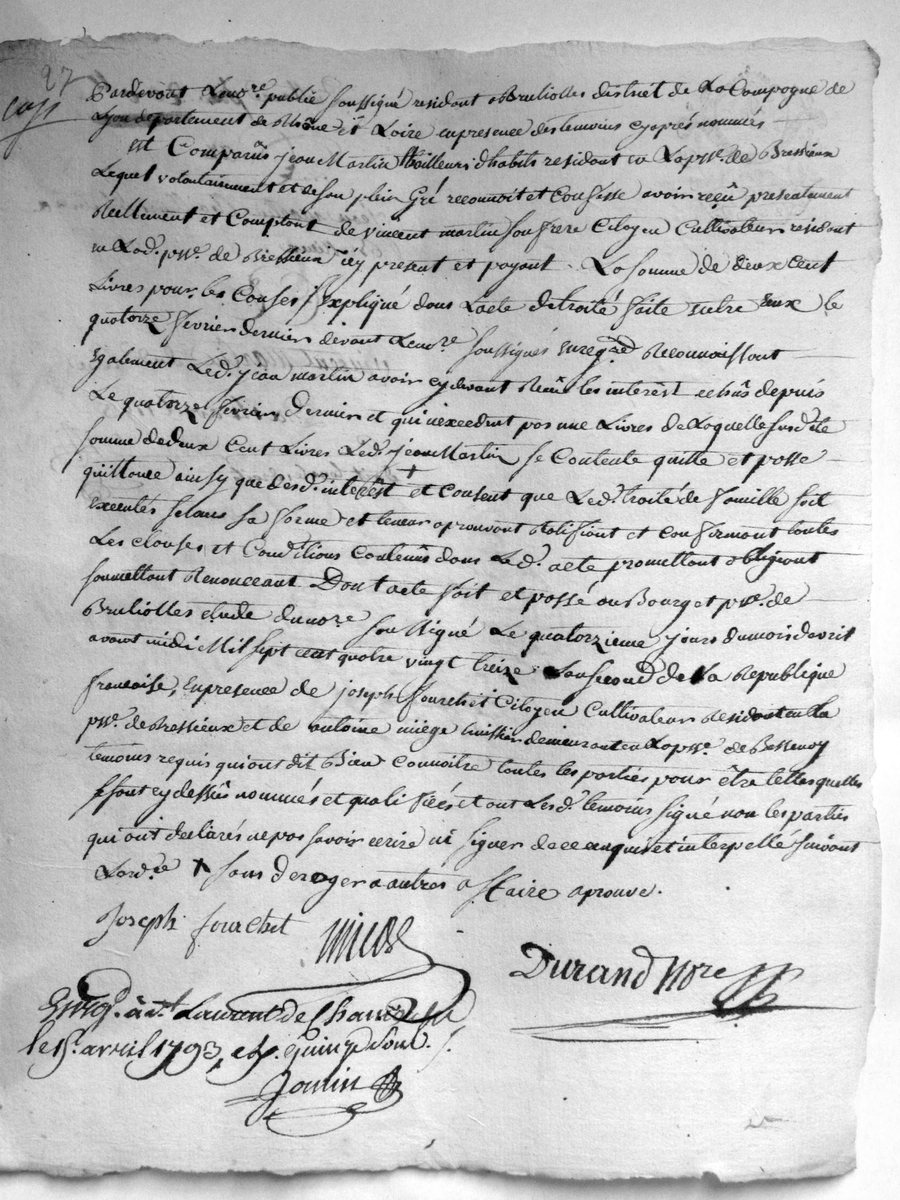 27
Pardevant Lenore publié soussigné residant a Brullolles district de La Campagne de
Lyon departement de Rhône et Loire en presence des temoins cy après nommés
est Comparûs jean Martin tailleurs d'habits residant en La psse. de Bressieux
Lequel volontairement et de son plein Gré reconnoit et confesse avoir reçû presentement
Réellement et Comptant de vincent martin son frere Citoyen Cultivateur residant
en Lad. psse. de Bressieux icy present et payant La somme de deux cent
Livres pour les Causes Expliqué dans L'acte de traité faite entre Eux le
quatorze fevrier dernier devant Lenore soussigné enregré Reconnoissant
Egalement Led. jean martin avoir cy devant Reçû les interêt echûs depuis
Le quatorze fevrier Dernier et qui n'excedent pas une Livres de Laquelle susdite
somme de deux Cent Livres Led. jean Martin se Contente quitte et passe
quittance ainsy que desd. interêst + et Consent que Led. traité de famille soit
executés selons sa forme et teneur aprouvant Ratifiant et confirmant toutes
Les clauses et Conditions Contenûs dans Led. acte promettant obligeant
soumettant Renonceant Dont acte fait et passé au Bourg et psse. de
Brullolles etude dunore soussigné Le quatorzieme jours du mois d'avril
avant midi Mil sept cent quatre vingt treize L'an second de La Republique
francaise, en presence de joseph fourchet Citoyen Cultivateur Residant en La
psse. de Bressieux et de antoine miége huissier demeurant en La psse. de Bessenay
temoins requis qui ont dit Bien Connoître toutes les parties pour être telles quelles
sont cy dessûs nommés et qualifiées et ont Lesd. temoins signé non les parties
qui ont declarés ne pas savoir ecrire ni signer de ce enquis et interpellé suivant
Lordce + sans deroger a autres affaire aprouve.
Joseph fourchet
Durand Nore
Enregé. à st Laurent de Chamousset
le 15. avril 1793, quinze sous